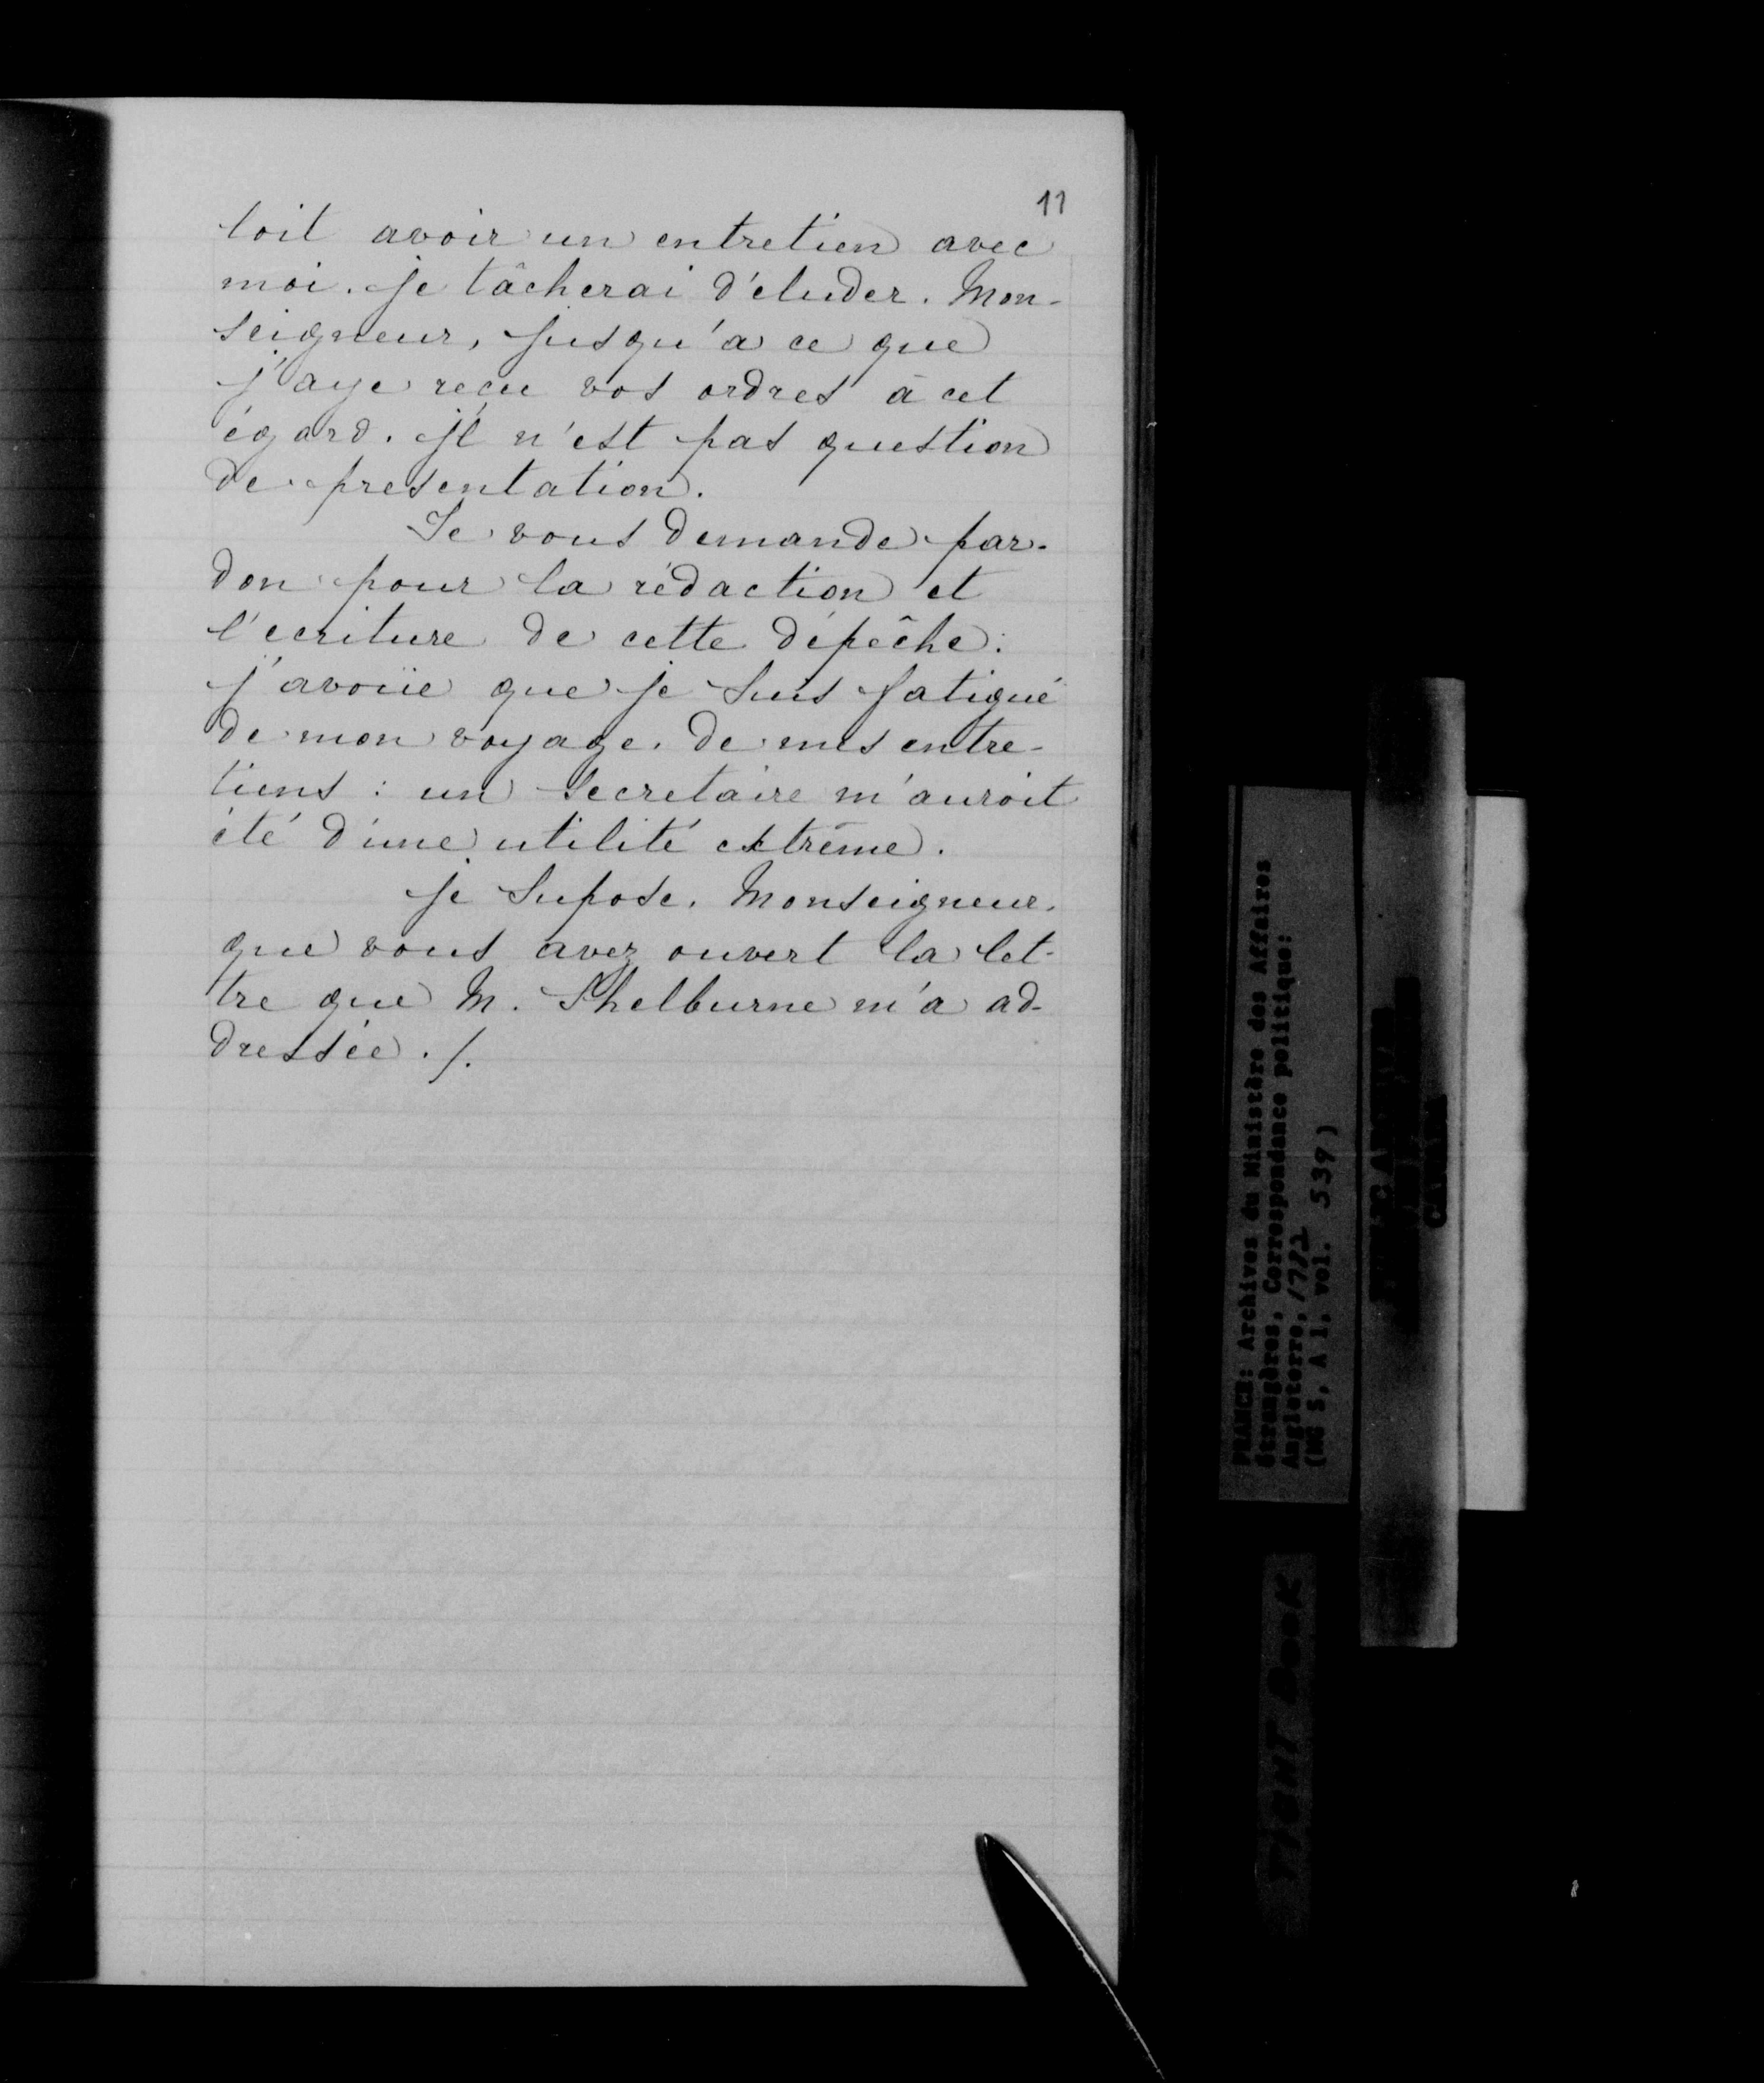 11
loit avoir un entretien avec
moi. je tâcherai d'eluder. Mon-
seigneur, jusqu'à ce que
j'aye reçu vos ordres à cet
égard. Il n'est pas question
de presentation.
Je vous demande par-
don pour la rédaction et
l'ecriture de cette dépêche:
j'avoüe que je suis fatigué
de mon voyage. de mes entre-
tiens: un secretaire m'auroit
été d'une utilité extrême.
je supose. Monseigneur.
que vous avez ouvert la let-
tre que M. Shelburne m'a ad-
dressée./.
FRANCE: Archives du Ministère des Affaires
étrangères, Correspondance politique:
Angleterre, 1782
(MG 5, A 1, vol. 539)
TIGHT BOOK